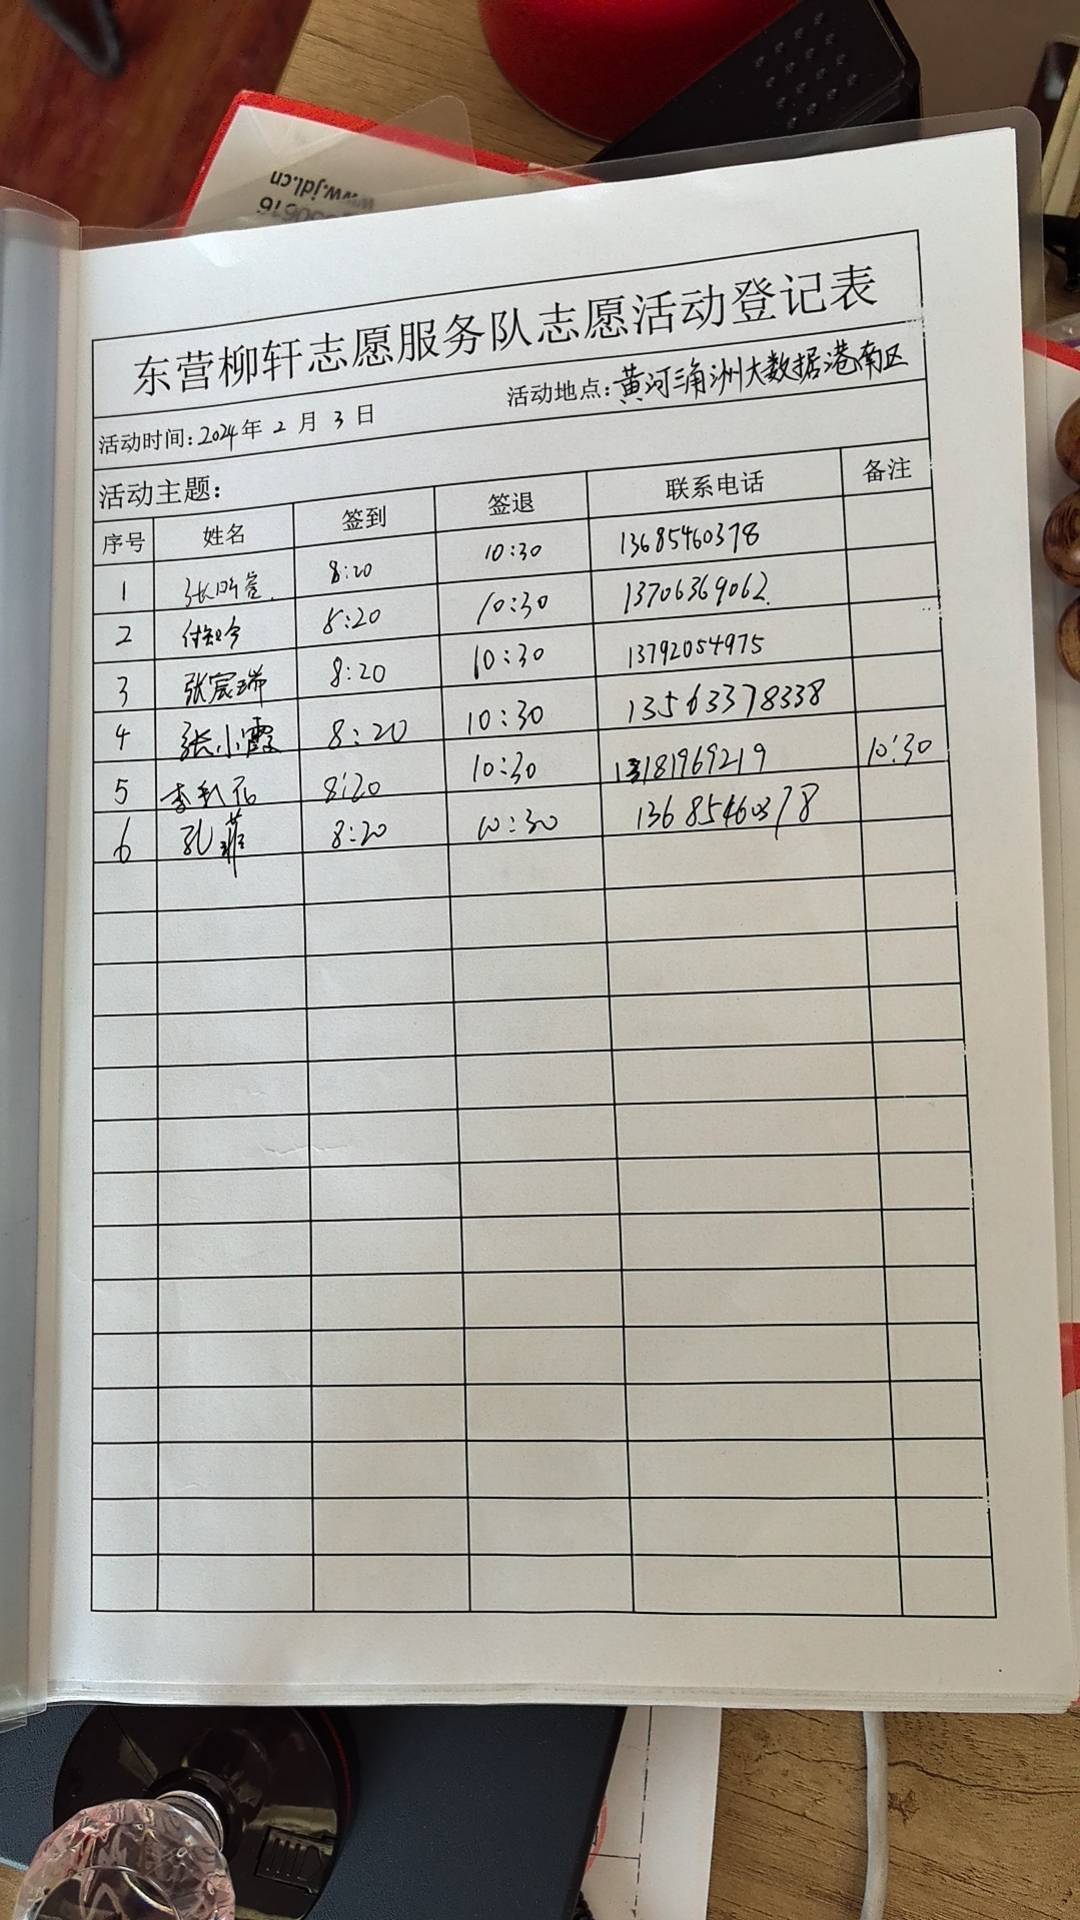 www.jdl.cn
东营柳轩志愿服务队志愿活动登记表
活动时间:2024年 2 月 3 日 活动地点:黄河三角洲大数据港南区
活动主题:
序号 姓名 签到 签退 联系电话 备注
1 8:20 10:30 13685460378
2 8:20 10:30 13706369062.
3 张宸瑞 8:20 10:30 13792054975
4 张小霞 8:20 10:30 13563378338
5 8:20 10:30 13181969219 10:30
6 孔菲 8:20 10:30 13685460378